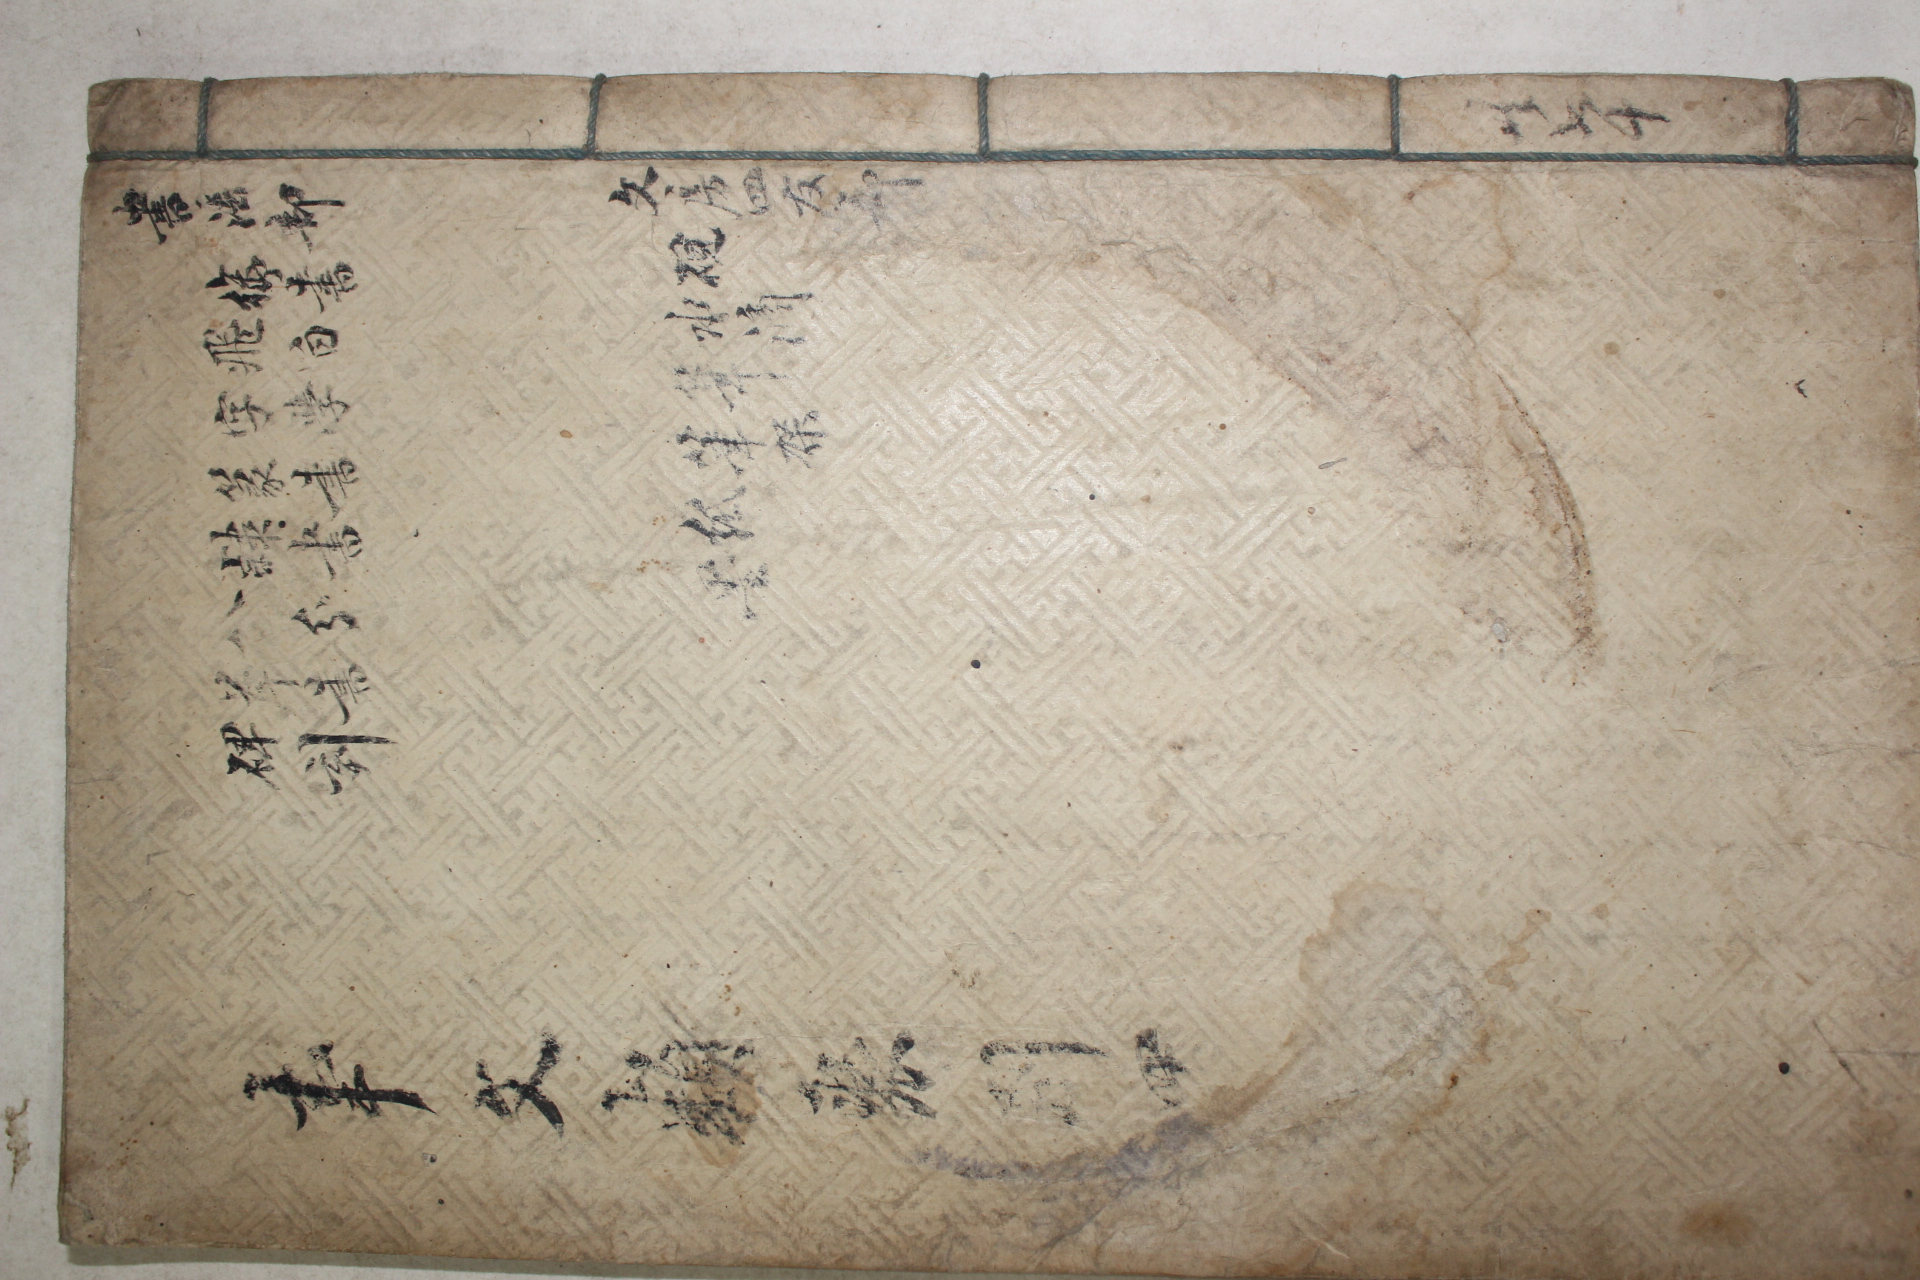 書法部
御書
飛白
字學
篆書
隷書
八分
草書
碑刻
文房四友部
硯
水滴
筆
筆架
紙
墨
事文類聚別四
共六十